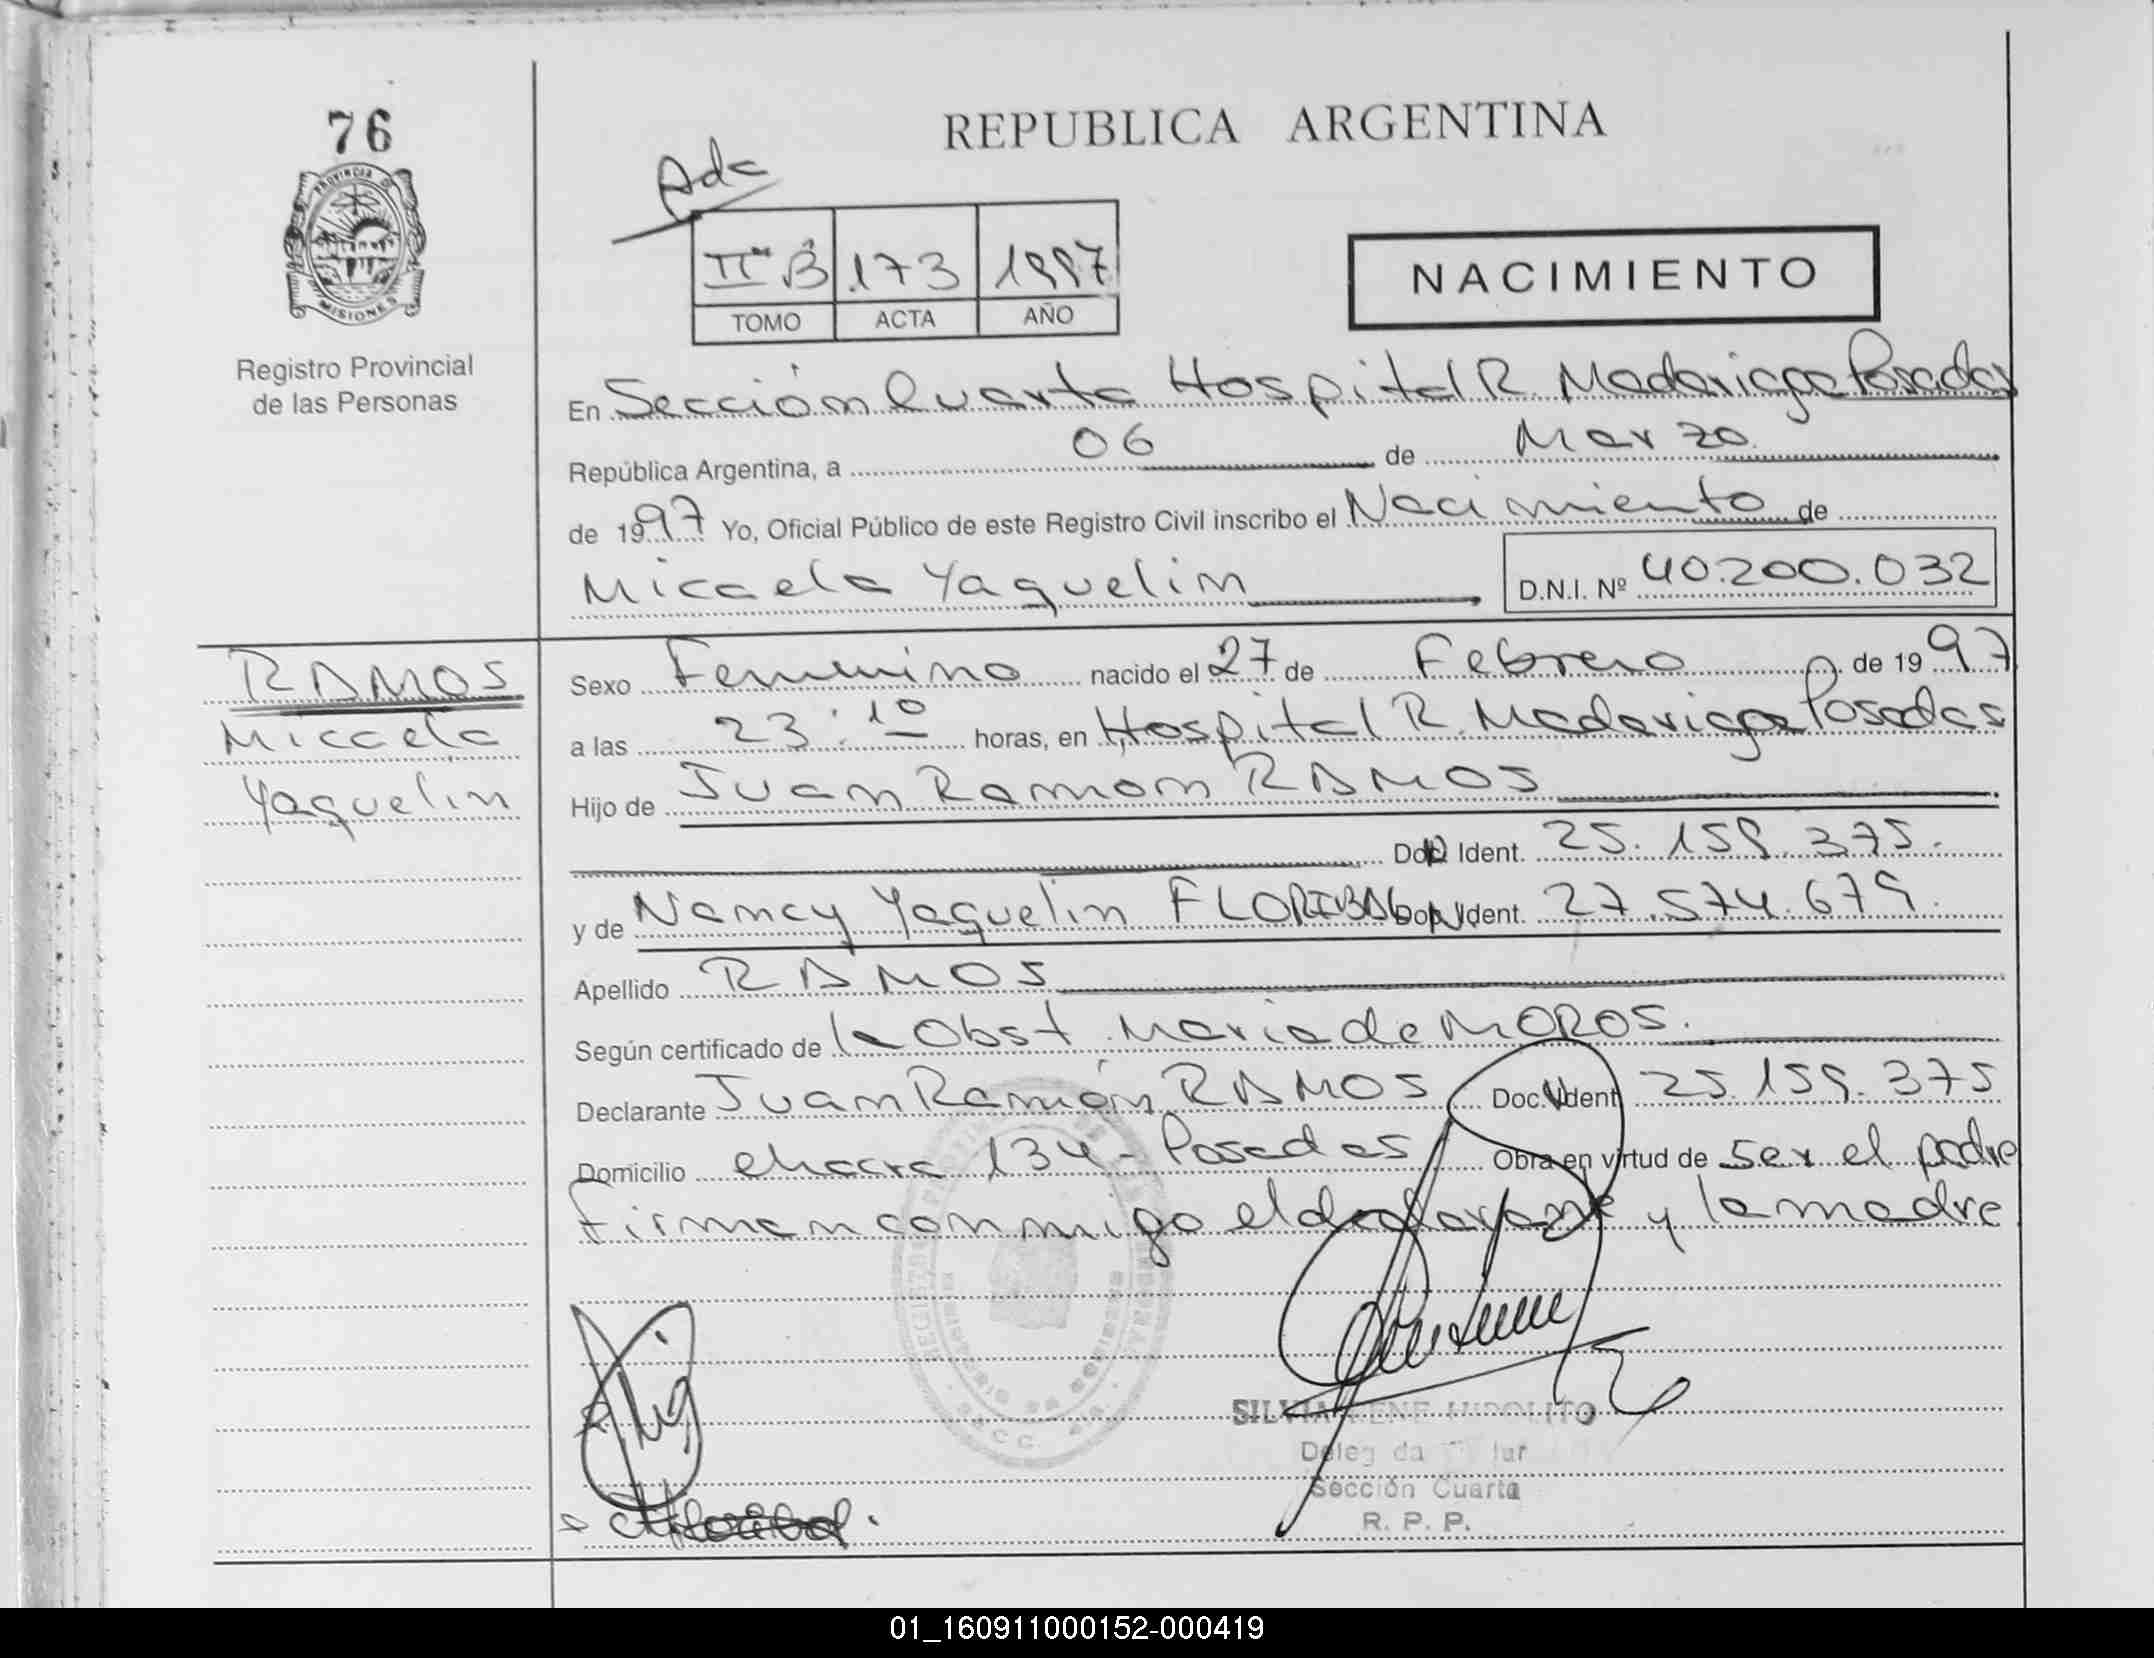 76
PROVINCIA DE
MISIONES
Registro Provincial
de las Personas
REPUBLICA ARGENTINA
II B 173 1997
TOMO ACTA AÑO
NACIMIENTO
En Sección Cuarta Hospital R. Madariaga Posadas
República Argentina, a 06 de Marzo
de 1997 Yo, Oficial Público de este Registro Civil inscribo el Nacimiento de
Micaela Yaquelin D.N.I. Nº 40.200.032
RAMOS
Micaela
Yaquelin
Sexo Femenino nacido el 27 de Febrero de 1997
a las 23:10 horas, en Hospital R. Madariaga Posadas
Hijo de Juan Ramon RAMOS
Doc. Ident. 25.159.375.
y de Nancy Yaquelin Doc. Ident. 27.574.679.
Apellido RAMOS
Según certificado de la Obst. Maria de MOROS.
Declarante Juan Ramón RAMOS Doc. Ident. 25.159.375
Domicilio chacra 134 - Posadas Obra en virtud de ser el padre
Firman conmigo el declarante y la madre
SILVIA IRENE HIPOLITO
Delegada Titular
Sección Cuarta
R. P. P.
01_160911000152-000419